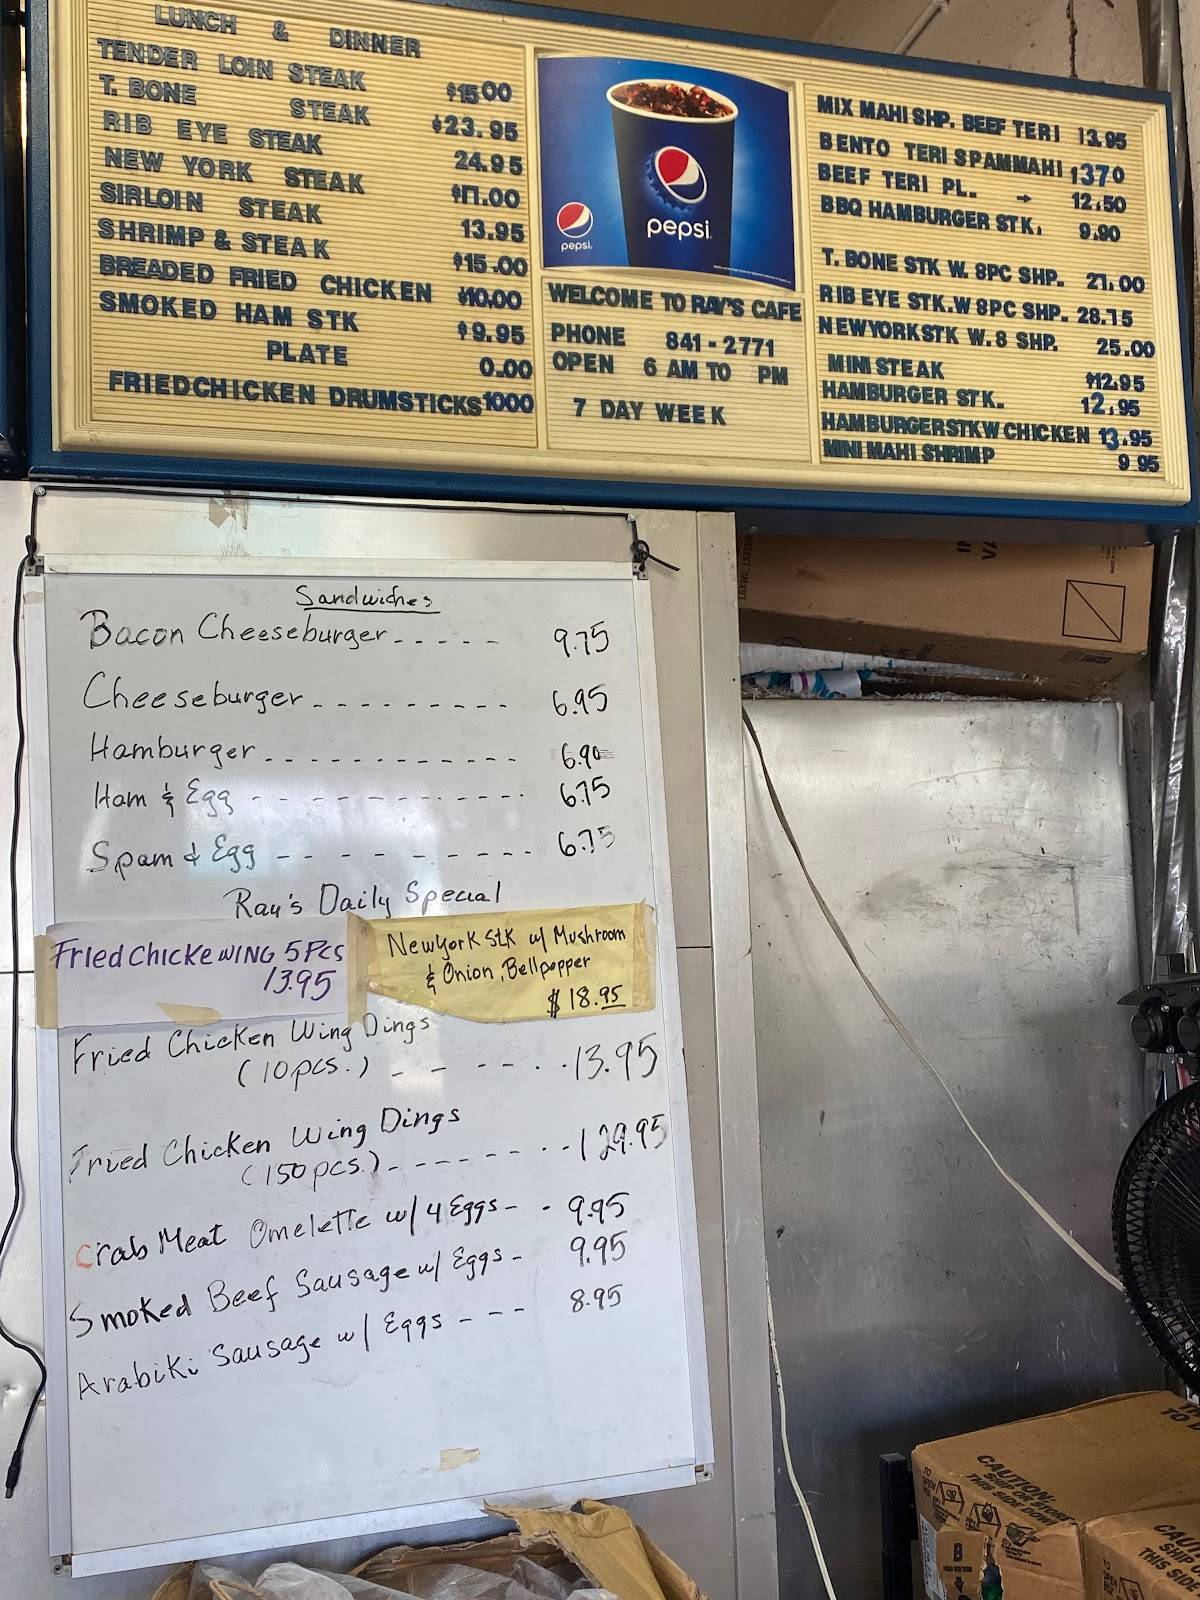 LUNCH & DINNER
TENDER LOIN STEAK $15.00
T. BONE STEAK $23.95
RIB EYE STEAK 24.95
NEW YORK STEAK $17.00
SIRLOIN STEAK 13.95
SHRIMP & STEAK $15.00
BREADED FRIED CHICKEN $10.00
SMOKED HAM STK $9.95
PLATE 0.00
FRIEDCHICKEN DRUMSTICKS 1000
pepsi
pepsi.
WELCOME TO RAY'S CAFE
PHONE 841-2771
OPEN 6 AM TO PM
7 DAY WEEK
MIX MAHI SHP. BEEF TERI 13.95
BENTO TERI SPAMMAHI 1370
BEEF TERI PL. → 12.50
BBQ HAMBURGER STK. 9.90
T. BONE STK W. 8PC SHP. 27.00
RIB EYE STK.W 8PC SHP. 28.75
NEWYORKSTK W. 8 SHP. 25.00
MINI STEAK $12.95
HAMBURGER STK. 12.95
HAMBURGERSTKW CHICKEN 13.95
MINI MAHI SHRIMP 9 95
Sandwiches
Bacon Cheeseburger 9.75
Cheeseburger 6.95
Hamburger 6.90
Ham & Egg 6.75
Spam & Egg 6.75
Ray's Daily Special
Fried Chicke WING 5 Pcs
13.95
NewYork Stk w/ Mushroom
& Onion, Bellpepper
$18.95
Fried Chicken Wing Dings
(10pcs.) 13.95
Fried Chicken Wing Dings
(150pcs.) 129.95
Crab Meat Omelette w/ 4 Eggs 9.95
Smoked Beef Sausage w/ Eggs 9.95
Arabiki Sausage w/ Eggs 8.95
CAUTION
THIS SIDE DOWN
B
THIS SI